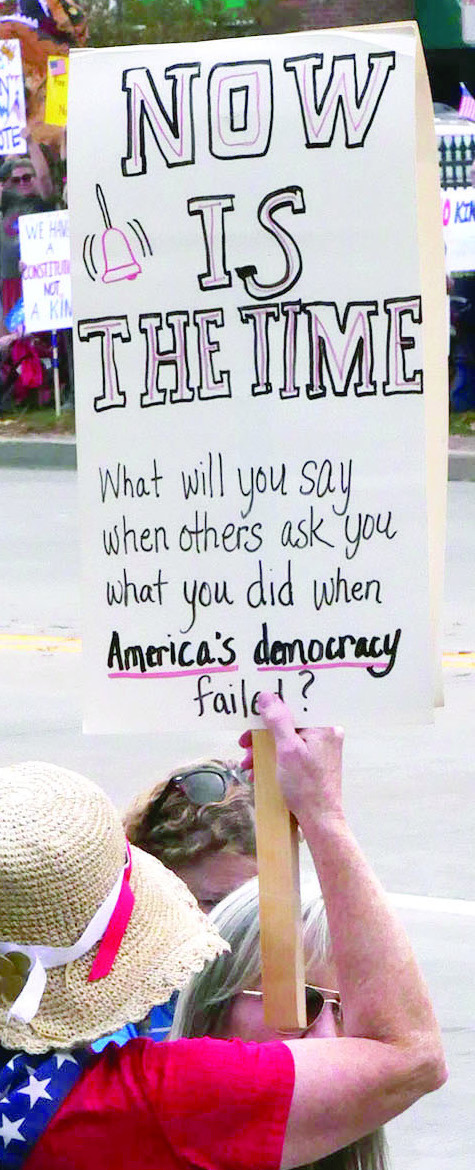 NOW
IS
THE TIME
What will you say
when others ask you
what you did when
America's democracy
failed?
WE HAVE
A
CONSTITUTION
NOT
A KIN
KIN